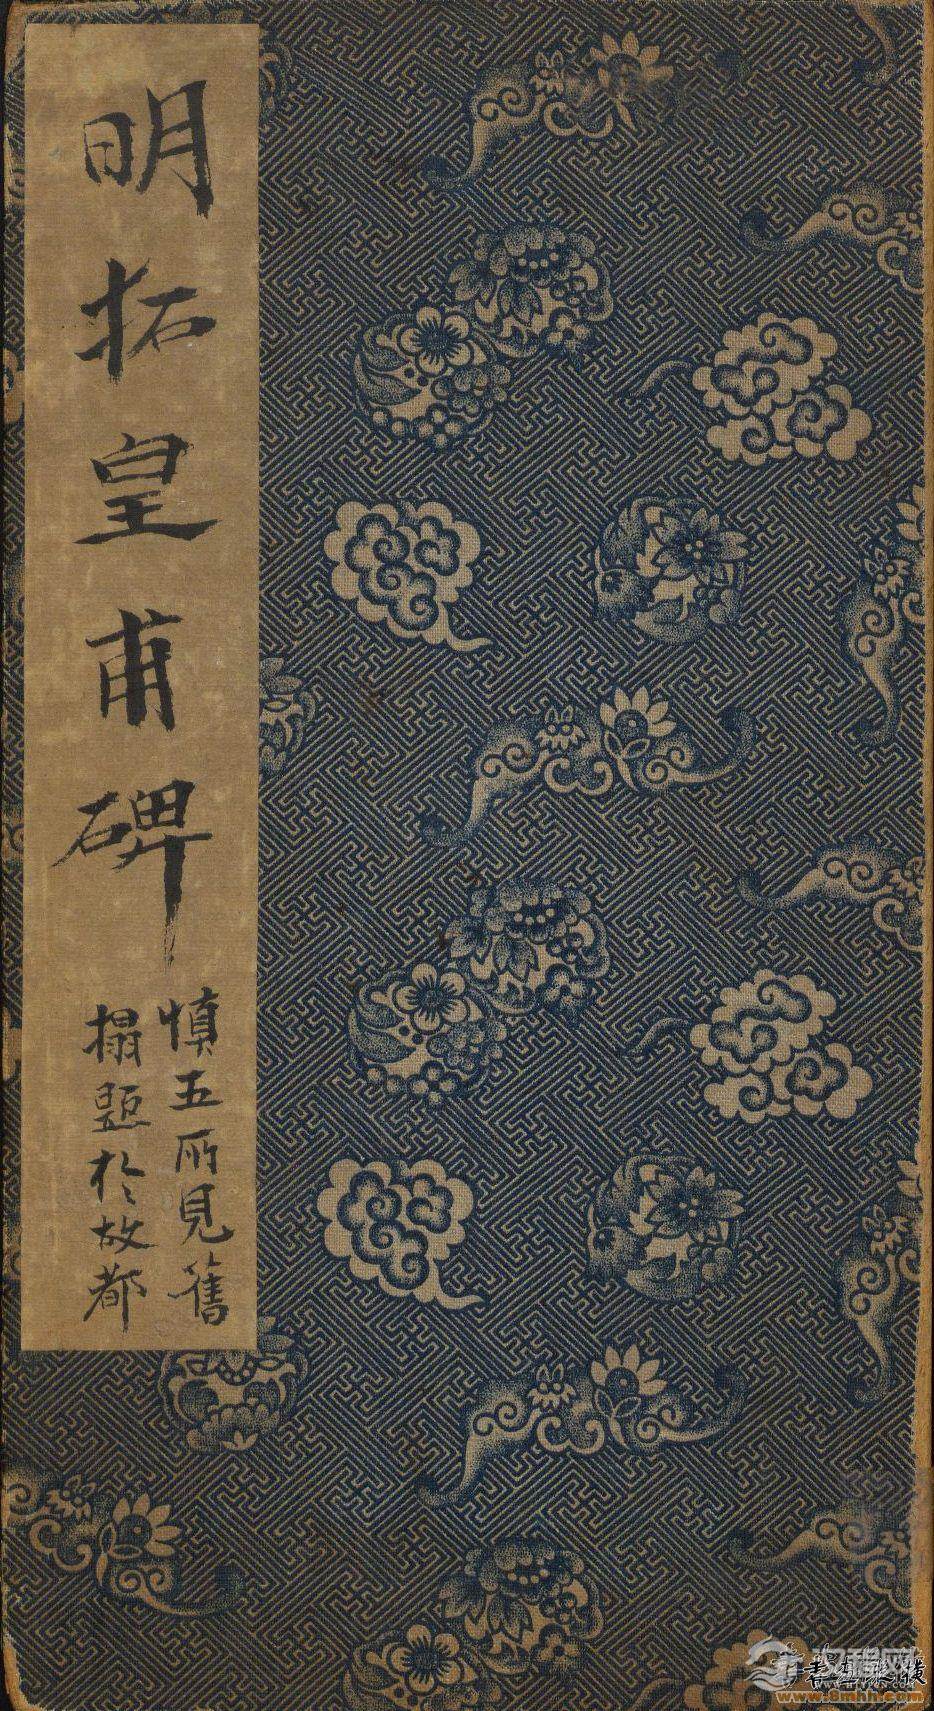 明拓皇甫碑
慎五所見舊
搨題於故都
www.8mhh.com